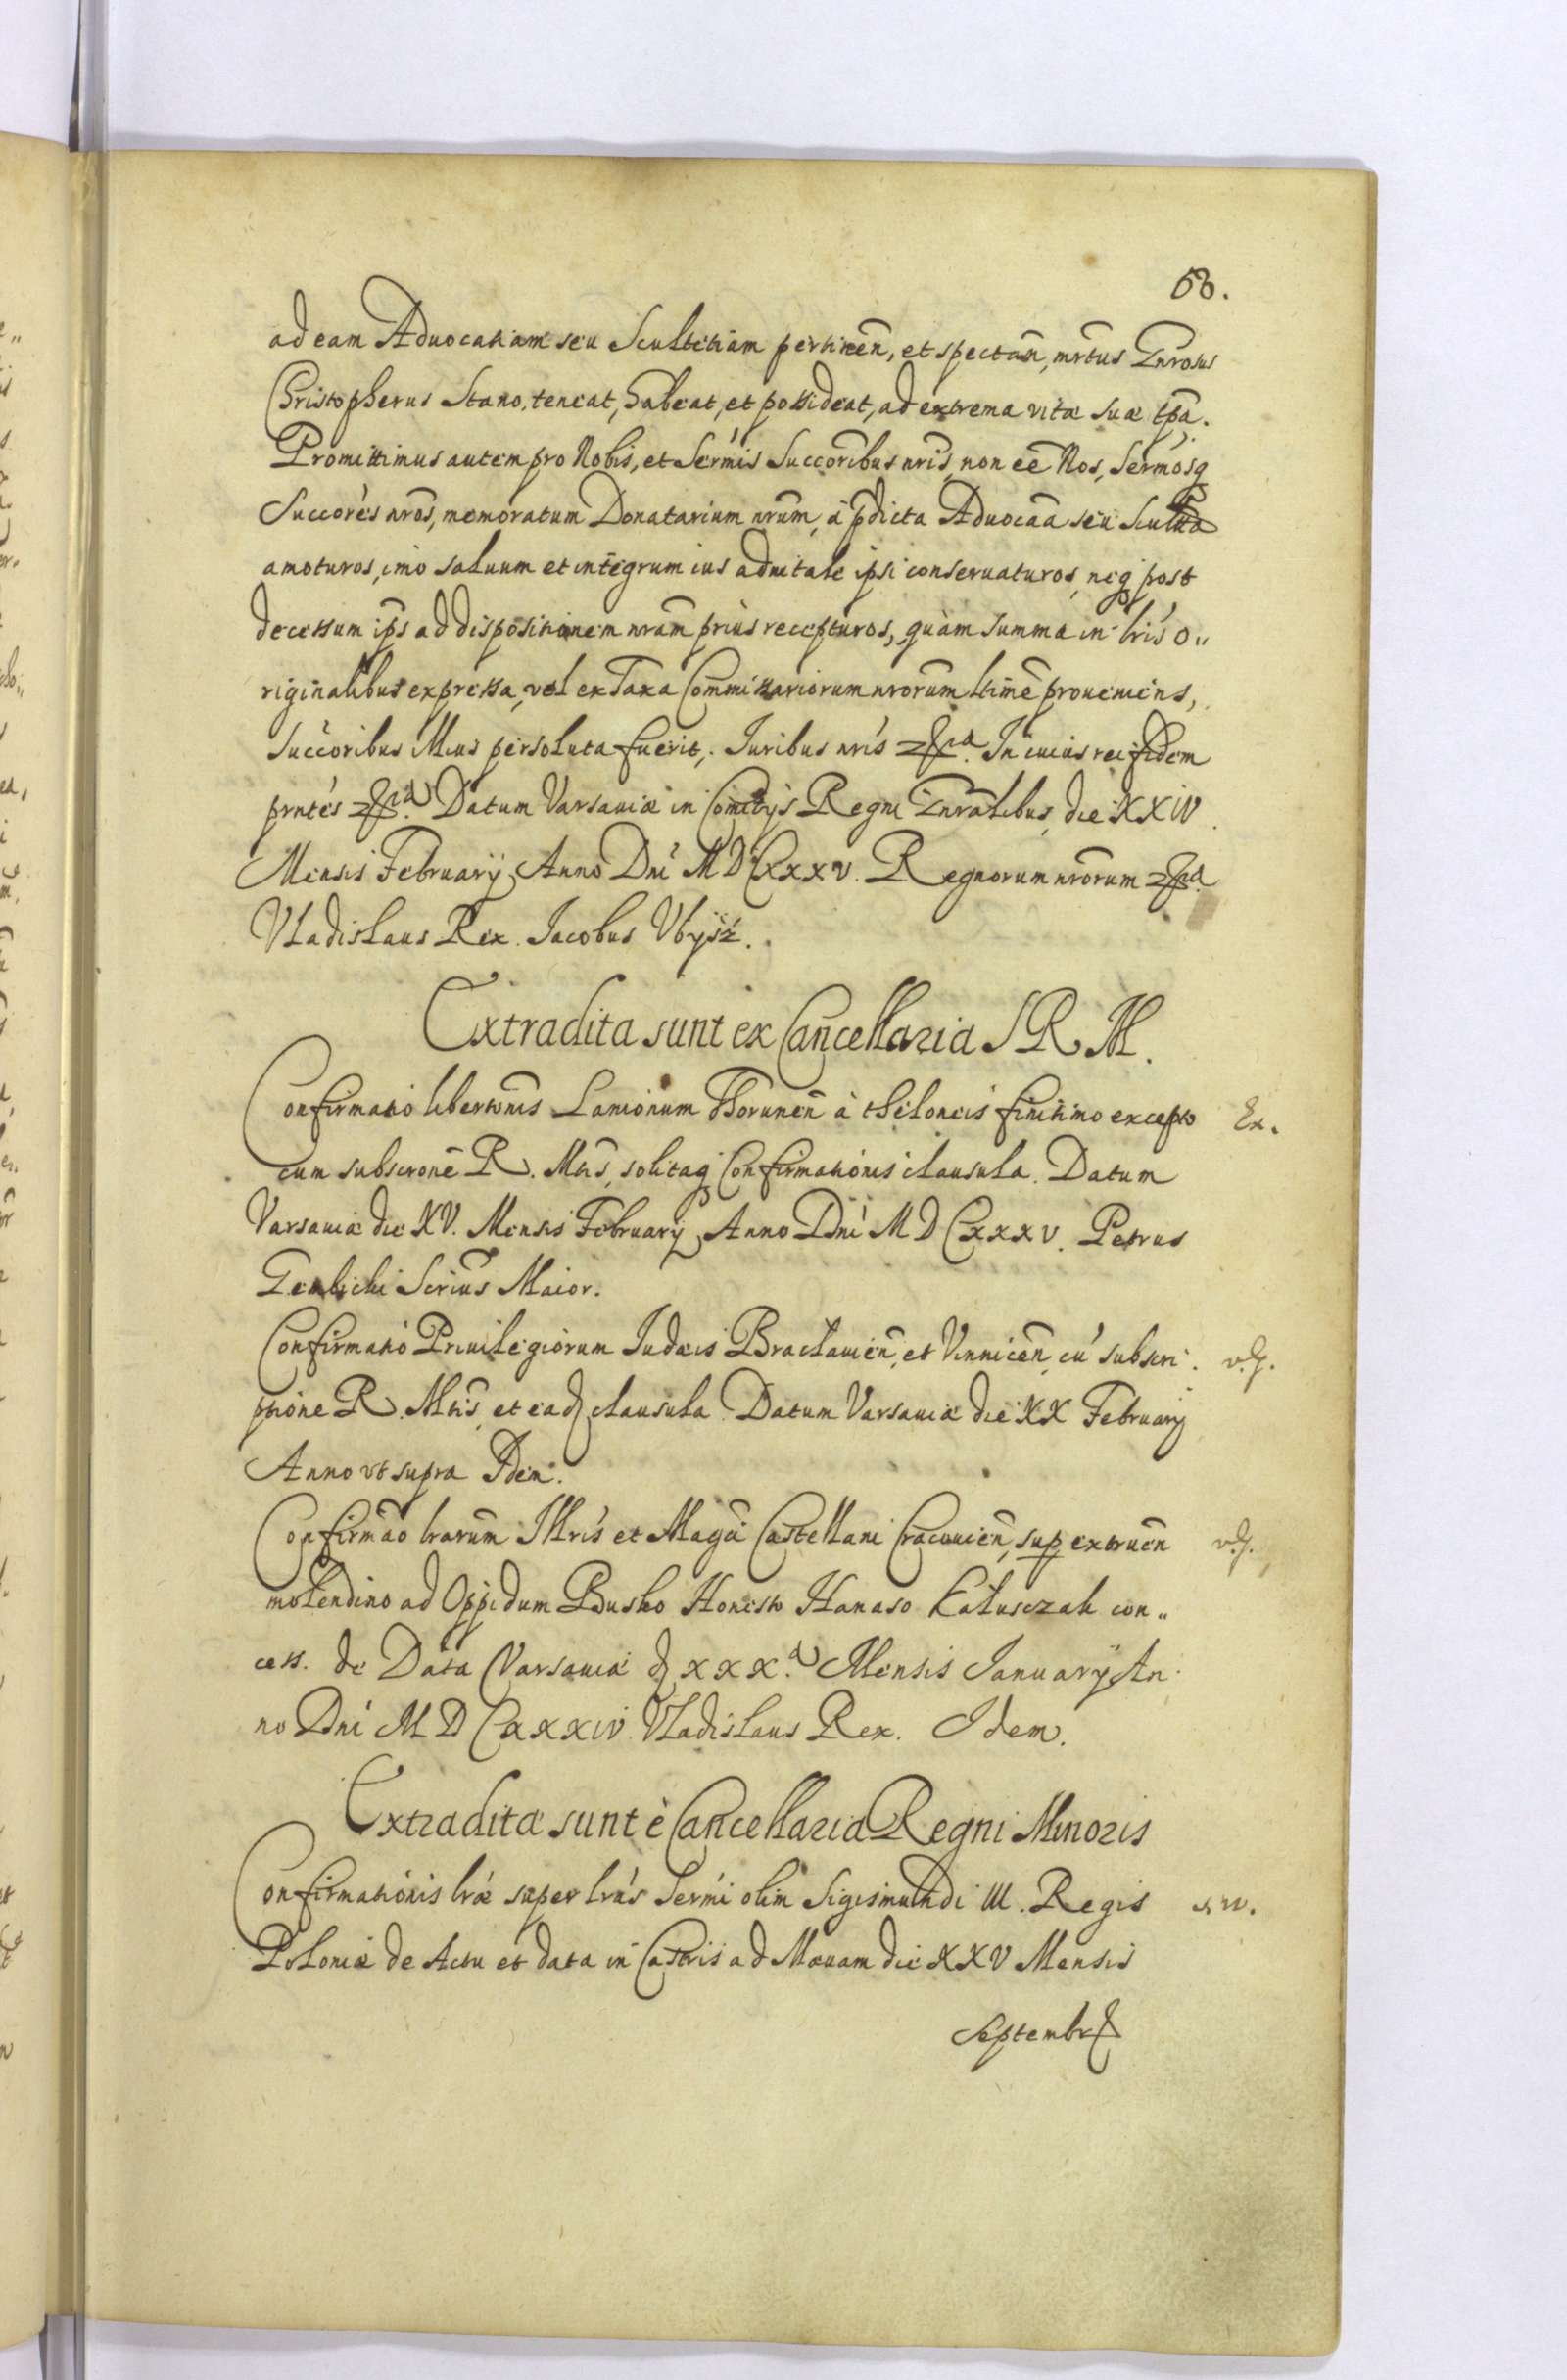 58.
ad eam Aduocatiam seu Scultetiam pertineñ, et spectañ, mrtus Gnrosus
Christopherus Stano, teneat, habeat, et possideat, ad extrema vitæ suæ tpa.
Promittimus autem pro Nobis, et Sermis Succoribus nris, non eē Nos, Sermosq
Succores nros, memoratum Donatarium nrum, à pdicta Aduocaā seu Scultta
amoturos, imo saluum et integrum ius aduitale ipsi conseruaturos, neq post
decessum ips ad dispositionem nram prius recepturos, quàm summa in lris o„
riginalibus expressa, vel ex Taxa Commissariorum nrorum ltime proueniens,
succoribus illius persoluta fuerit, Iuribus nris In cuius rei fidem
prntes Datum Varsauiæ in Comitijs Regni Gnralibus, die XXIV
Mensis February Anno Dni MDCXXXV. Regnorum nrorum
Vladislaus Rex. Jacobus Vbysz.
Extradita sunt ex Cancellaria S R M.
Confirmatio libertonis Lanionum Thorunen à theloneis finitimo excepto Ex.
cum subscrone R. Mtis, solitaq Confirmationis clausula. Datum
Varsauiæ die XV. Mensis February Anno Dni MDCXXXV. Petrus
Gembicki Scrius Maior.
Confirmatio Priuilegiorum Iudæis Braclauien, et Vinnicen, cu subscri
ptione R. Mtis et ead clausula. Datum Varsauiæ die XX February
Anno vt supra Idem.
Confirmao lrarum Illris et Magci Castellani Cracouien, sup extruen
molendino ad Oppidum Busko Honesto Hanaso Kałusczak con„
cess. de Data Varsauiæ d XXX.a Mensis January An
no Dni MDCXXXIV. Vladislaus Rex. Idem.
Extradita sunt è Cancellaria Regni Minoris
Confirmationis lræ super lras Sermi olim Sigismundi III. Regis
Poloniæ de Actu et data in Castris ad Mæuam die XXV Mensis
Septembr